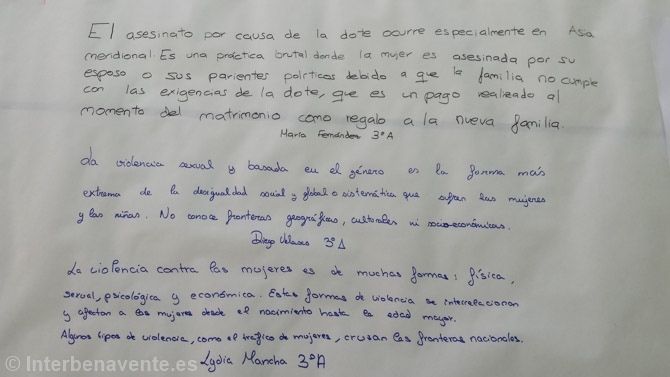 El asesinato por causa de la dote ocurre especialmente en Asia
meridional. Es una práctica brutal donde la mujer es asesinada por su
esposo o sus parientes políticos debido a que la familia no cumple
con las exigencias de la dote, que es un pago realizado al
momento del matrimonio como regalo a la nueva familia.
María Fernández 3ºA
La violencia sexual y basada en el género es la forma más
extrema de la desigualdad social y global o sistemática que sufren las mujeres
y las niñas. No conoce fronteras geográficas, culturales ni socio-económicas.
Diego Velasco 3ºA
La violencia contra las mujeres es de muchas formas: física,
sexual, psicológica y económica. Estas formas de violencia se interrelacionan
y afectan a las mujeres desde el nacimiento hasta la edad mayor.
Algunos tipos de violencia, como el tráfico de mujeres, crusan las fronteras nacionales.
Lydia Mancha 3ºA
© Interbenavente.es